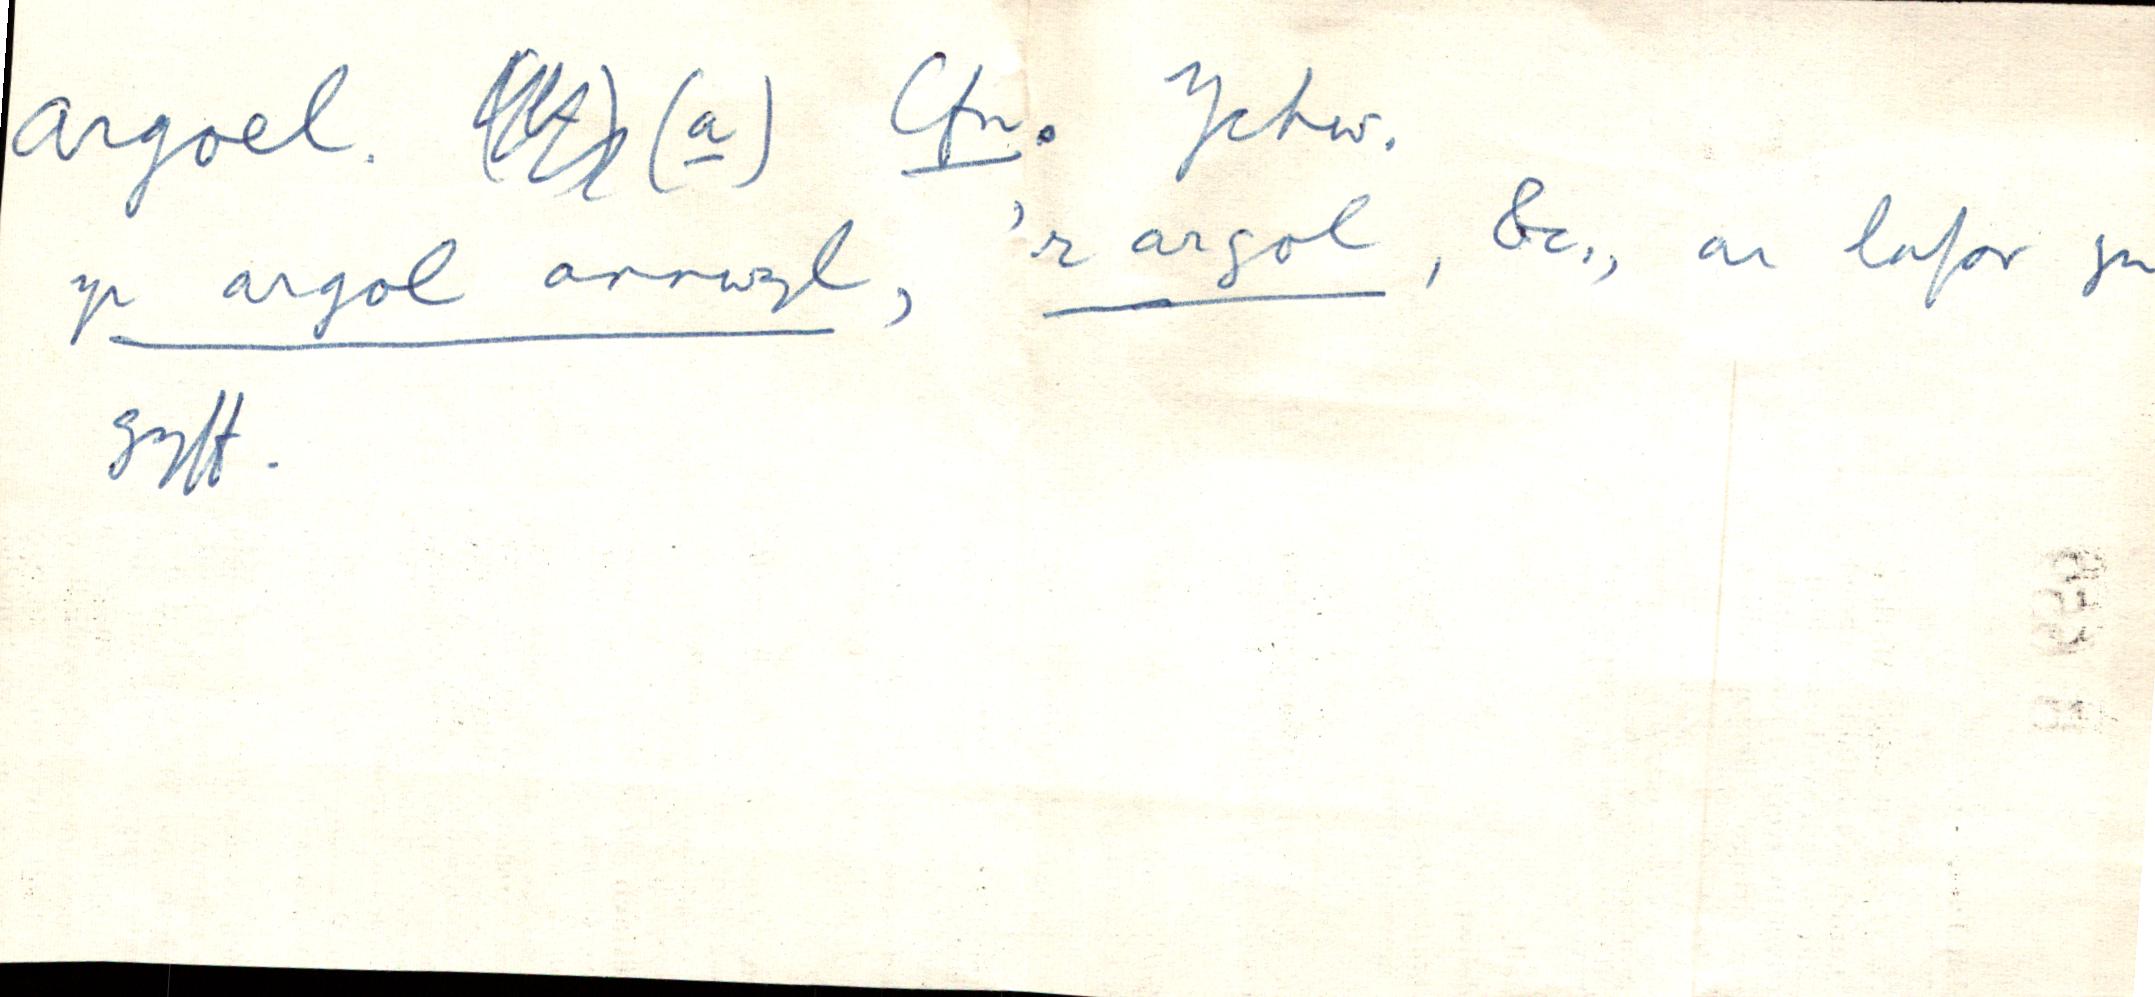 argoel. (a) Cfn. Ychw.
yr argol annwyl, 'r argol, &c., ar lafar yn
gyff.